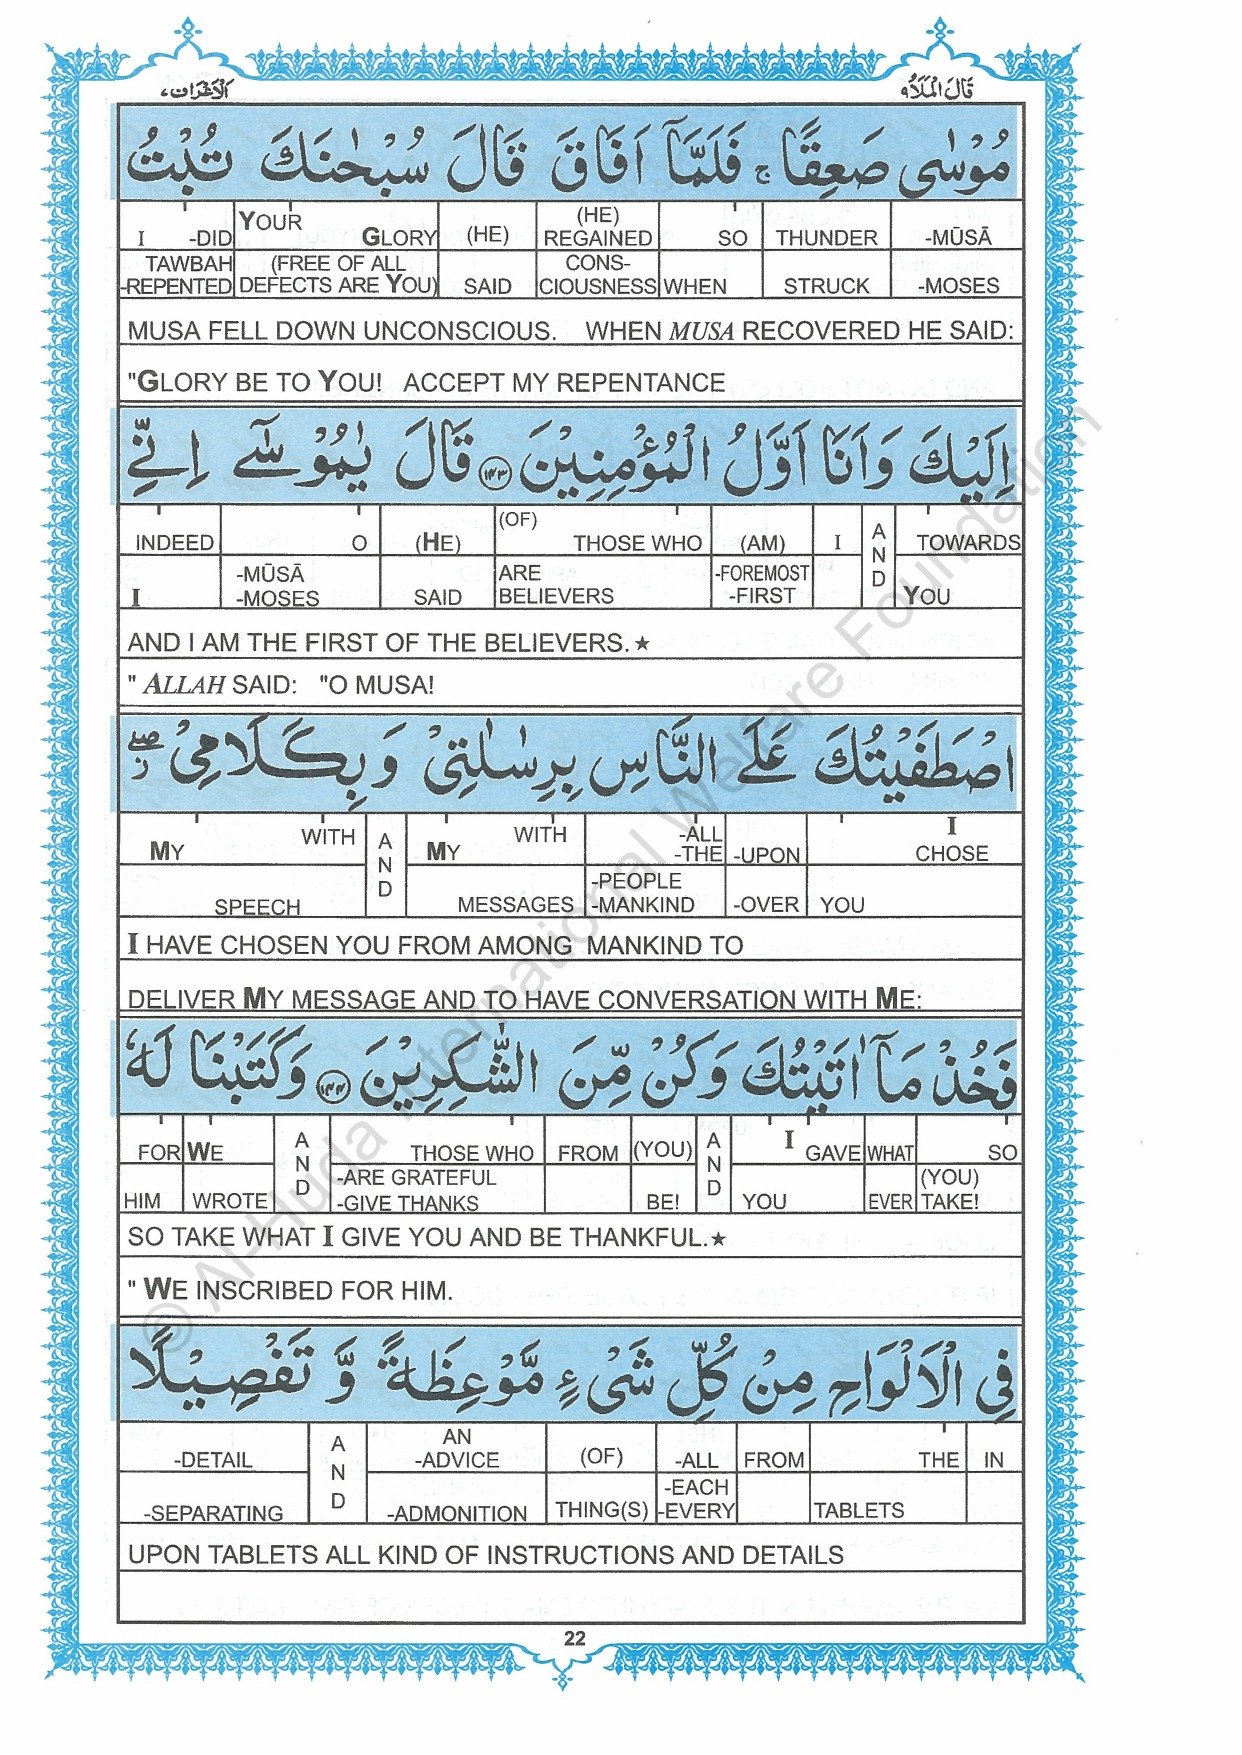 قَالَ الْمَلَاُ ٩ الْاَعْرَاف ٧
مُوْسٰى صَعِقًا ۚ فَلَمَّاۤ اَفَاقَ قَالَ سُبْحٰنَكَ تُبْتُ
I -DID YOUR GLORY (HE) (HE) REGAINED SO THUNDER -MŪSĀ
TAWBAH -REPENTED (FREE OF ALL DEFECTS ARE YOU) SAID CONS- CIOUSNESS WHEN STRUCK -MOSES
MUSA FELL DOWN UNCONSCIOUS. WHEN MUSA RECOVERED HE SAID:
"GLORY BE TO YOU! ACCEPT MY REPENTANCE
اِلَيْكَ وَاَنَا اَوَّلُ الْمُؤْمِنِيْنَ ۝١٤٣ قَالَ يٰمُوْسٰۤى اِنِّي
INDEED O (HE) (OF) THOSE WHO (AM) I AND TOWARDS
I -MŪSĀ -MOSES SAID ARE BELIEVERS -FOREMOST -FIRST YOU
AND I AM THE FIRST OF THE BELIEVERS.★
" ALLAH SAID: "O MUSA!
اصْطَفَيْتُكَ عَلَى النَّاسِ بِرِسٰلٰتِيْ وَبِكَلَامِيْ ۖ
MY WITH AND MY WITH -ALL -THE -UPON I CHOSE
SPEECH MESSAGES -PEOPLE -MANKIND -OVER YOU
I HAVE CHOSEN YOU FROM AMONG MANKIND TO
DELIVER MY MESSAGE AND TO HAVE CONVERSATION WITH ME:
فَخُذْ مَاۤ اٰتَيْتُكَ وَكُنْ مِّنَ الشّٰكِرِيْنَ ۝١٤٤ وَكَتَبْنَا لَهٗ
FOR WE AND THOSE WHO FROM (YOU) AND I GAVE WHAT SO
HIM WROTE -ARE GRATEFUL -GIVE THANKS BE! YOU EVER (YOU) TAKE!
SO TAKE WHAT I GIVE YOU AND BE THANKFUL.★
" WE INSCRIBED FOR HIM.
فِي الْاَلْوَاحِ مِنْ كُلِّ شَيْءٍ مَّوْعِظَةً وَّ تَفْصِيْلًا
-DETAIL AND AN -ADVICE (OF) -ALL FROM THE IN
-SEPARATING -ADMONITION THING(S) -EACH -EVERY TABLETS
UPON TABLETS ALL KIND OF INSTRUCTIONS AND DETAILS
22
© Al-Huda International Welfare Foundation